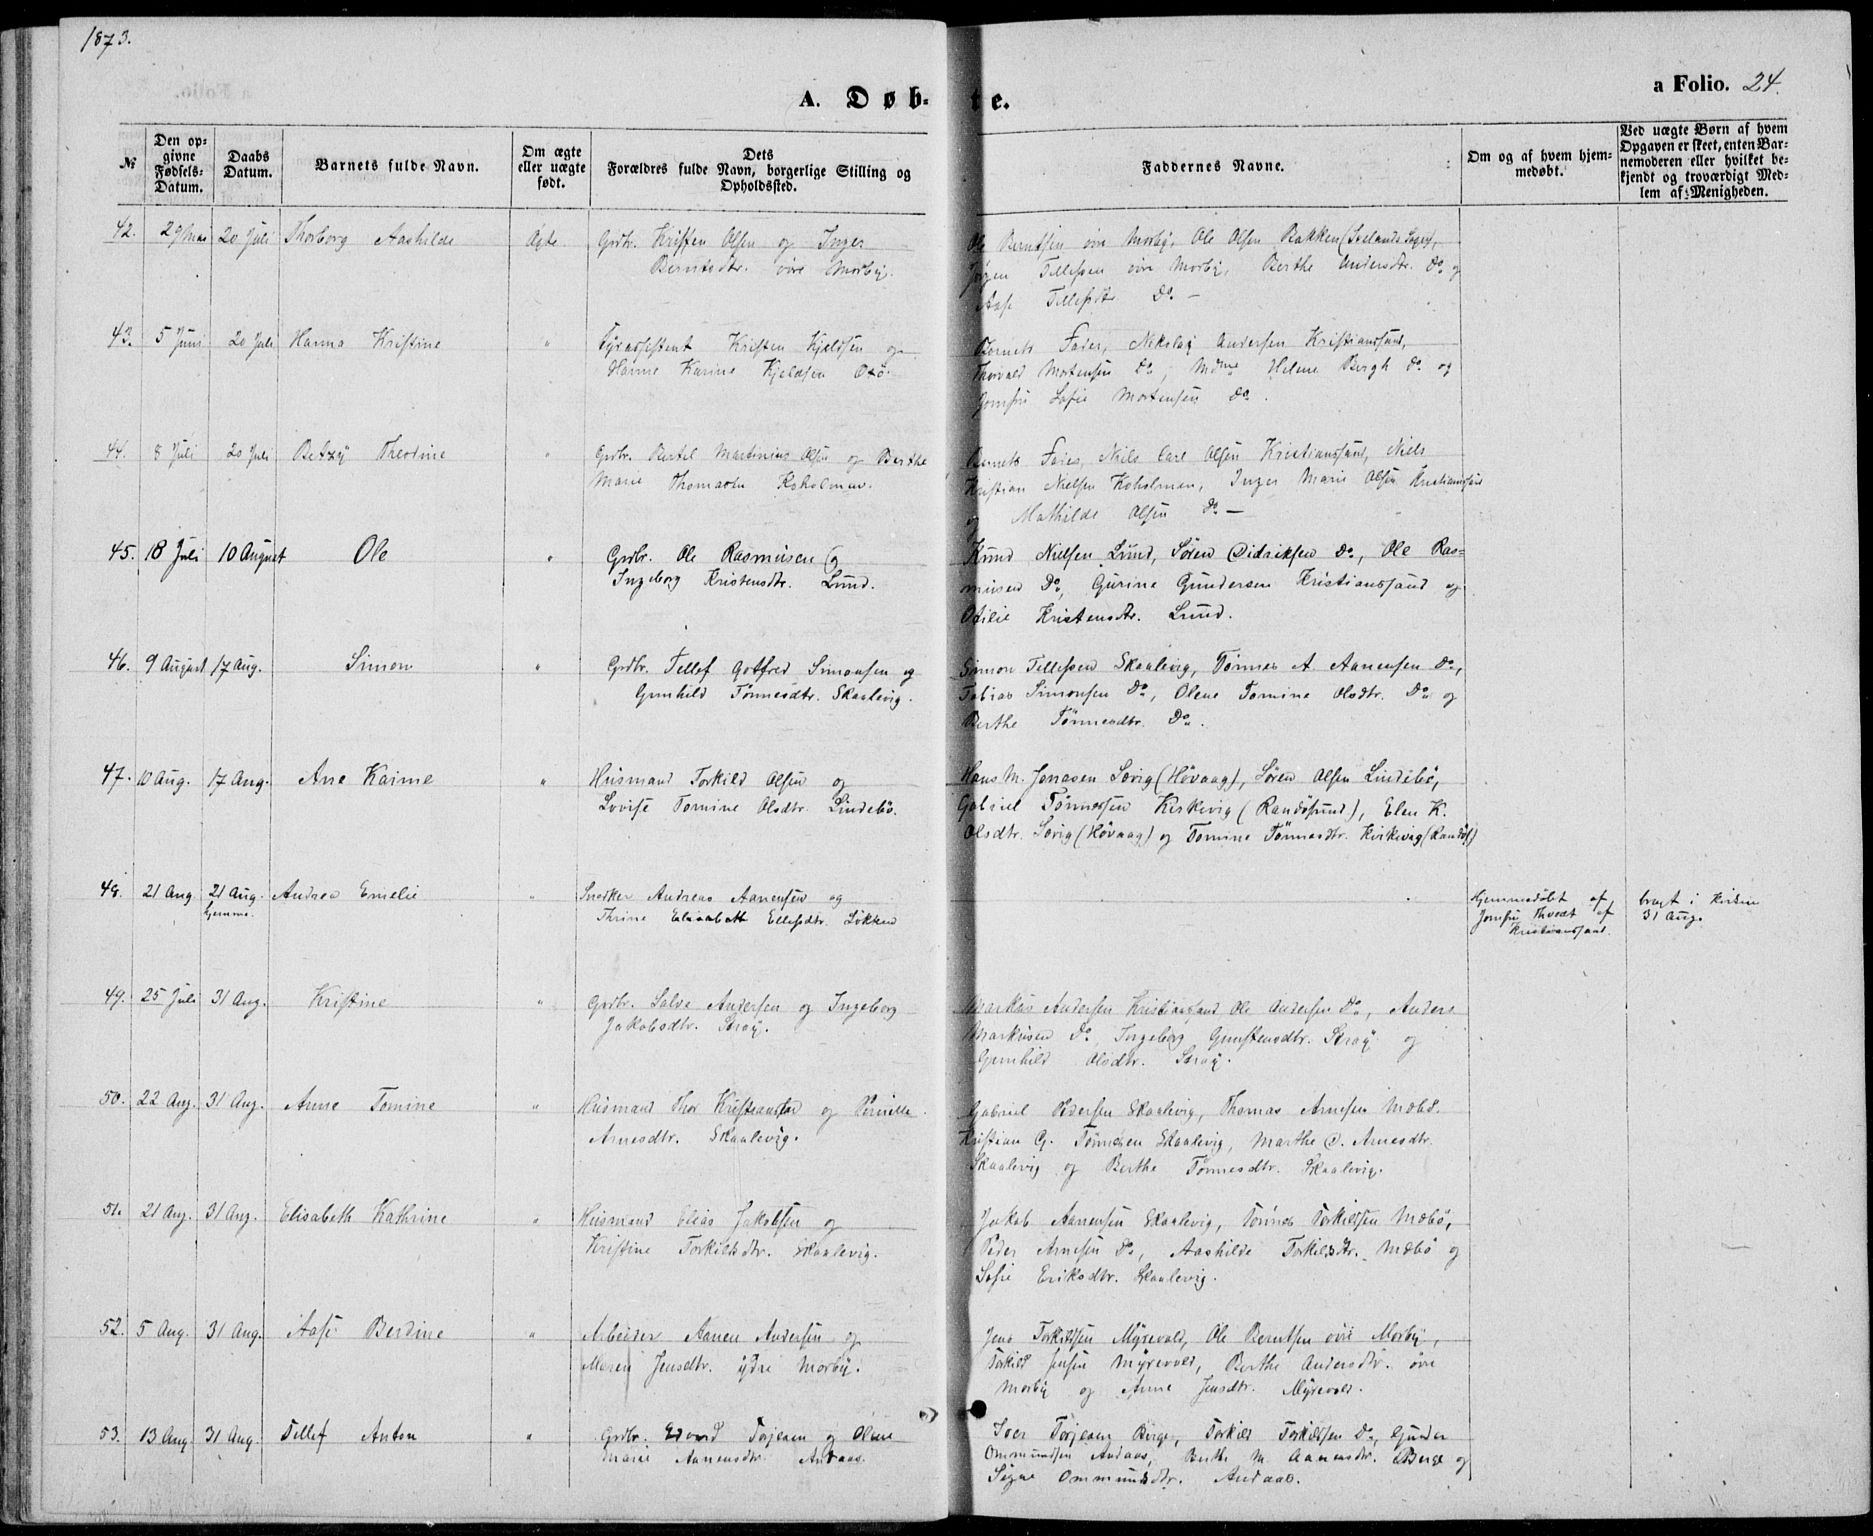 1873.
A. Døb-
te.
a Folio. 24.
№
Den op-
givne
Fødsels-
Datum.
Daabs
Datum.
Barnets fulde Navn.
Om ægte
eller uægte
født.
Dets
Forældres fulde Navn, borgerlige Stilling og
Opholdssted.
Faddernes Navne.
Om og af hvem hjem-
medøbt.
Ved uægte Børn af hvem
Opgaven er skeet, enten Bar-
nemoderen eller hvilket be-
kjendt og troværdigt Med-
lem af Menigheden.
42. 29 Mai 20 Juli Thorborg Aashilde Ægte Grdbr. Kristen Olsen og Inger
Berntsdtr. øvre Morby.
Ole Berntsen øvre Morby, Ole Olsen Bakken
Jørgen Tellefsen øvre Morby, Berthe Andersdtr. Do og
Aase Tellefsdtr Do. –
43. 5 Juni 20 Juli Hanna Kristine " Fyrassistent Kristen Kjeldsen og
Hanne Karine Kjeldsen Oxø.
Barnets Fader, Nikolay Andersen Kristianssand,
Thorvald Mortensen Do, Mdme Helene Bergh do og
Jomfru Sofie Mortensen do.
44. 8 Juli 20 Juli Betzy Theodine " Grdbr. Bertel Martinius Olsen og Berthe
Marie Thomasdtr Koholmen.
Barnets Fader, Nils Carl Olsen Kristianssand, Niels
Kristian Nielsen Koholmen, Inger Marie Olsen Kristianssand
og Mathilde Olsen do –
45. 18 Juli 10 August Ole " Grdbr. Ole Rasmusen og
Ingeborg Kristensdtr. Lund.
Knud Nielsen Lund, Søren Didriksen Do, Ole Ras=
musen Do, Gurine Gundersen Kristianssand og
Otilie Kristensdtr. Lund.
46. 9 August 17 Aug. Simon " Grdbr. Tellef Gotfred Simonsen og
Gunhild Tønnesdtr. Skaalevig.
Simon Tellefsen Skaalevig, Tønnes A. Aanensen Do,
Tobias Simonsen Do, Olene Tomine Olsdtr. Do og
Berthe Tønnesdtr. Do.
47. 10 Aug. 17 Aug. Ane Kaime " Husmand Torkild Olsen og
Lovise Tomine Olsdtr. Lindebø.
Hans M. Jonasen Sævig (Høvaag), Søren Olsen Lindebø,
Gabriel Tønnessen Kirkevig (Randøsund), Elen K.
Olsdtr. Sævig (Høvaag) og Tomine Tønnesdtr. Kirkevig (Randøs.)
48. 21 Aug. 21 Aug. Andrea Emelie " Snedker Andreas Aanensen og
hjemme. Thrine Elisabeth Ellefsdtr. Løkken
Hjemmedøbt af bragt i Kirken
Jomfru Thvedt af 31 Aug.
Kristianssand.
49. 25 Juli 31 Aug. Kristine " Grdbr. Salve Andersen og Ingeborg
Jakobsdtr. Strøy.
Markus Andersen Kristianssand Ole Andersen Do, Anders
Markusen Do, Ingeborg Gunstensdtr. Strøy og
Gunhild Olsdtr. Strøy.
50. 22 Aug. 31 Aug. Anne Tomine " Husmand Thor Kristensen og Pernille
Arnesdtr. Skaalevig.
Gabriel Pedersen Skaalevig, Thomas Arnesen Mæbø.
Kristian G. Tønnesen Skaalevig, Marthe O. Arnesdtr.
Skaalevig og Berthe Tønnesdtr. Skaalevig.
51. 21 Aug. 31 Aug. Elisabeth Kathrine " Husmand Elias Jakobsen og
Kristine Torkildsdtr. Skaalevig.
Jakob Aanensen Skaalevig, Tønnes Torkildsen Mæbø,
Peder Arnesen Do, Aashilde Torkildsdtr. Mæbø og
Sofie Eriksdtr. Skaalevig.
52. 5 Aug. 31 Aug. Aase Berdine " Arbeider Aanen Andersen og
Maren Jensdtr. ydre Morby.
Jens Torkildsen Myrevold, Ole Berntsen øvre Morby,
Torkild Jensen Myrevold, Berthe Andersdtr. øvre
Morby og Anne Jensdtr. Myrevold.
53. 13 Aug 31 Aug. Tellef Anton " Grdbr. Edvard Terjesen og Olene
Marie Aanensdtr. Andaas.
Iver Terjesen Berge, Torkild Torkildsen Do, Gunder
Ommundsen Andaas, Berthe M. Aanensdtr. Berge og
Signe Ommundsdtr. Andaas.